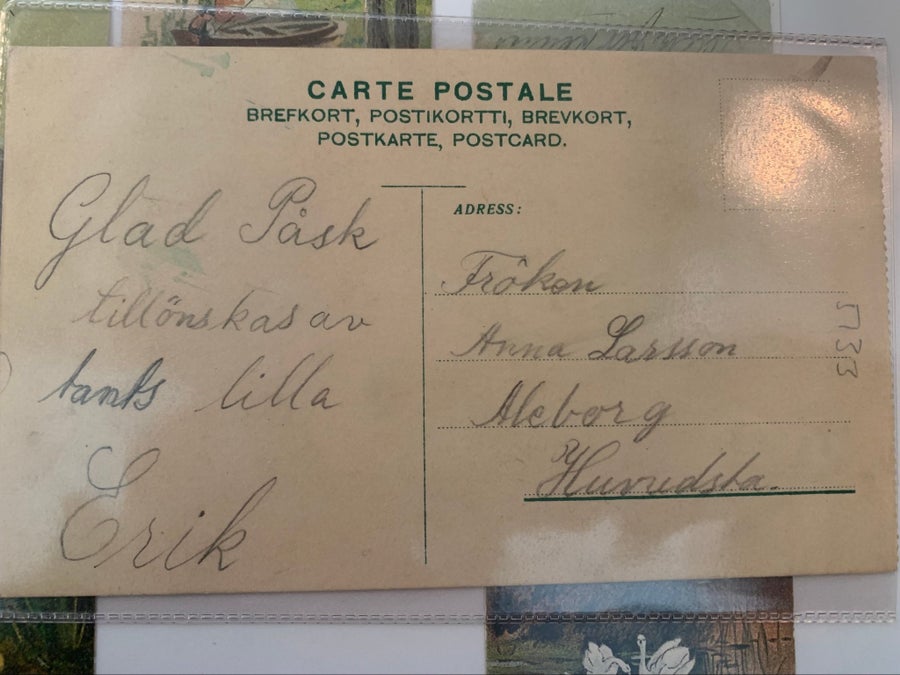 CARTE POSTALE
BREFKORT, POSTIKORTTI, BREVKORT,
POSTKARTE, POSTCARD.
Glad Påsk
tillönskas av
tants lilla
Erik
ADRESS:
Fröken
Anna Larsson
Aleborg
Huvudsta.